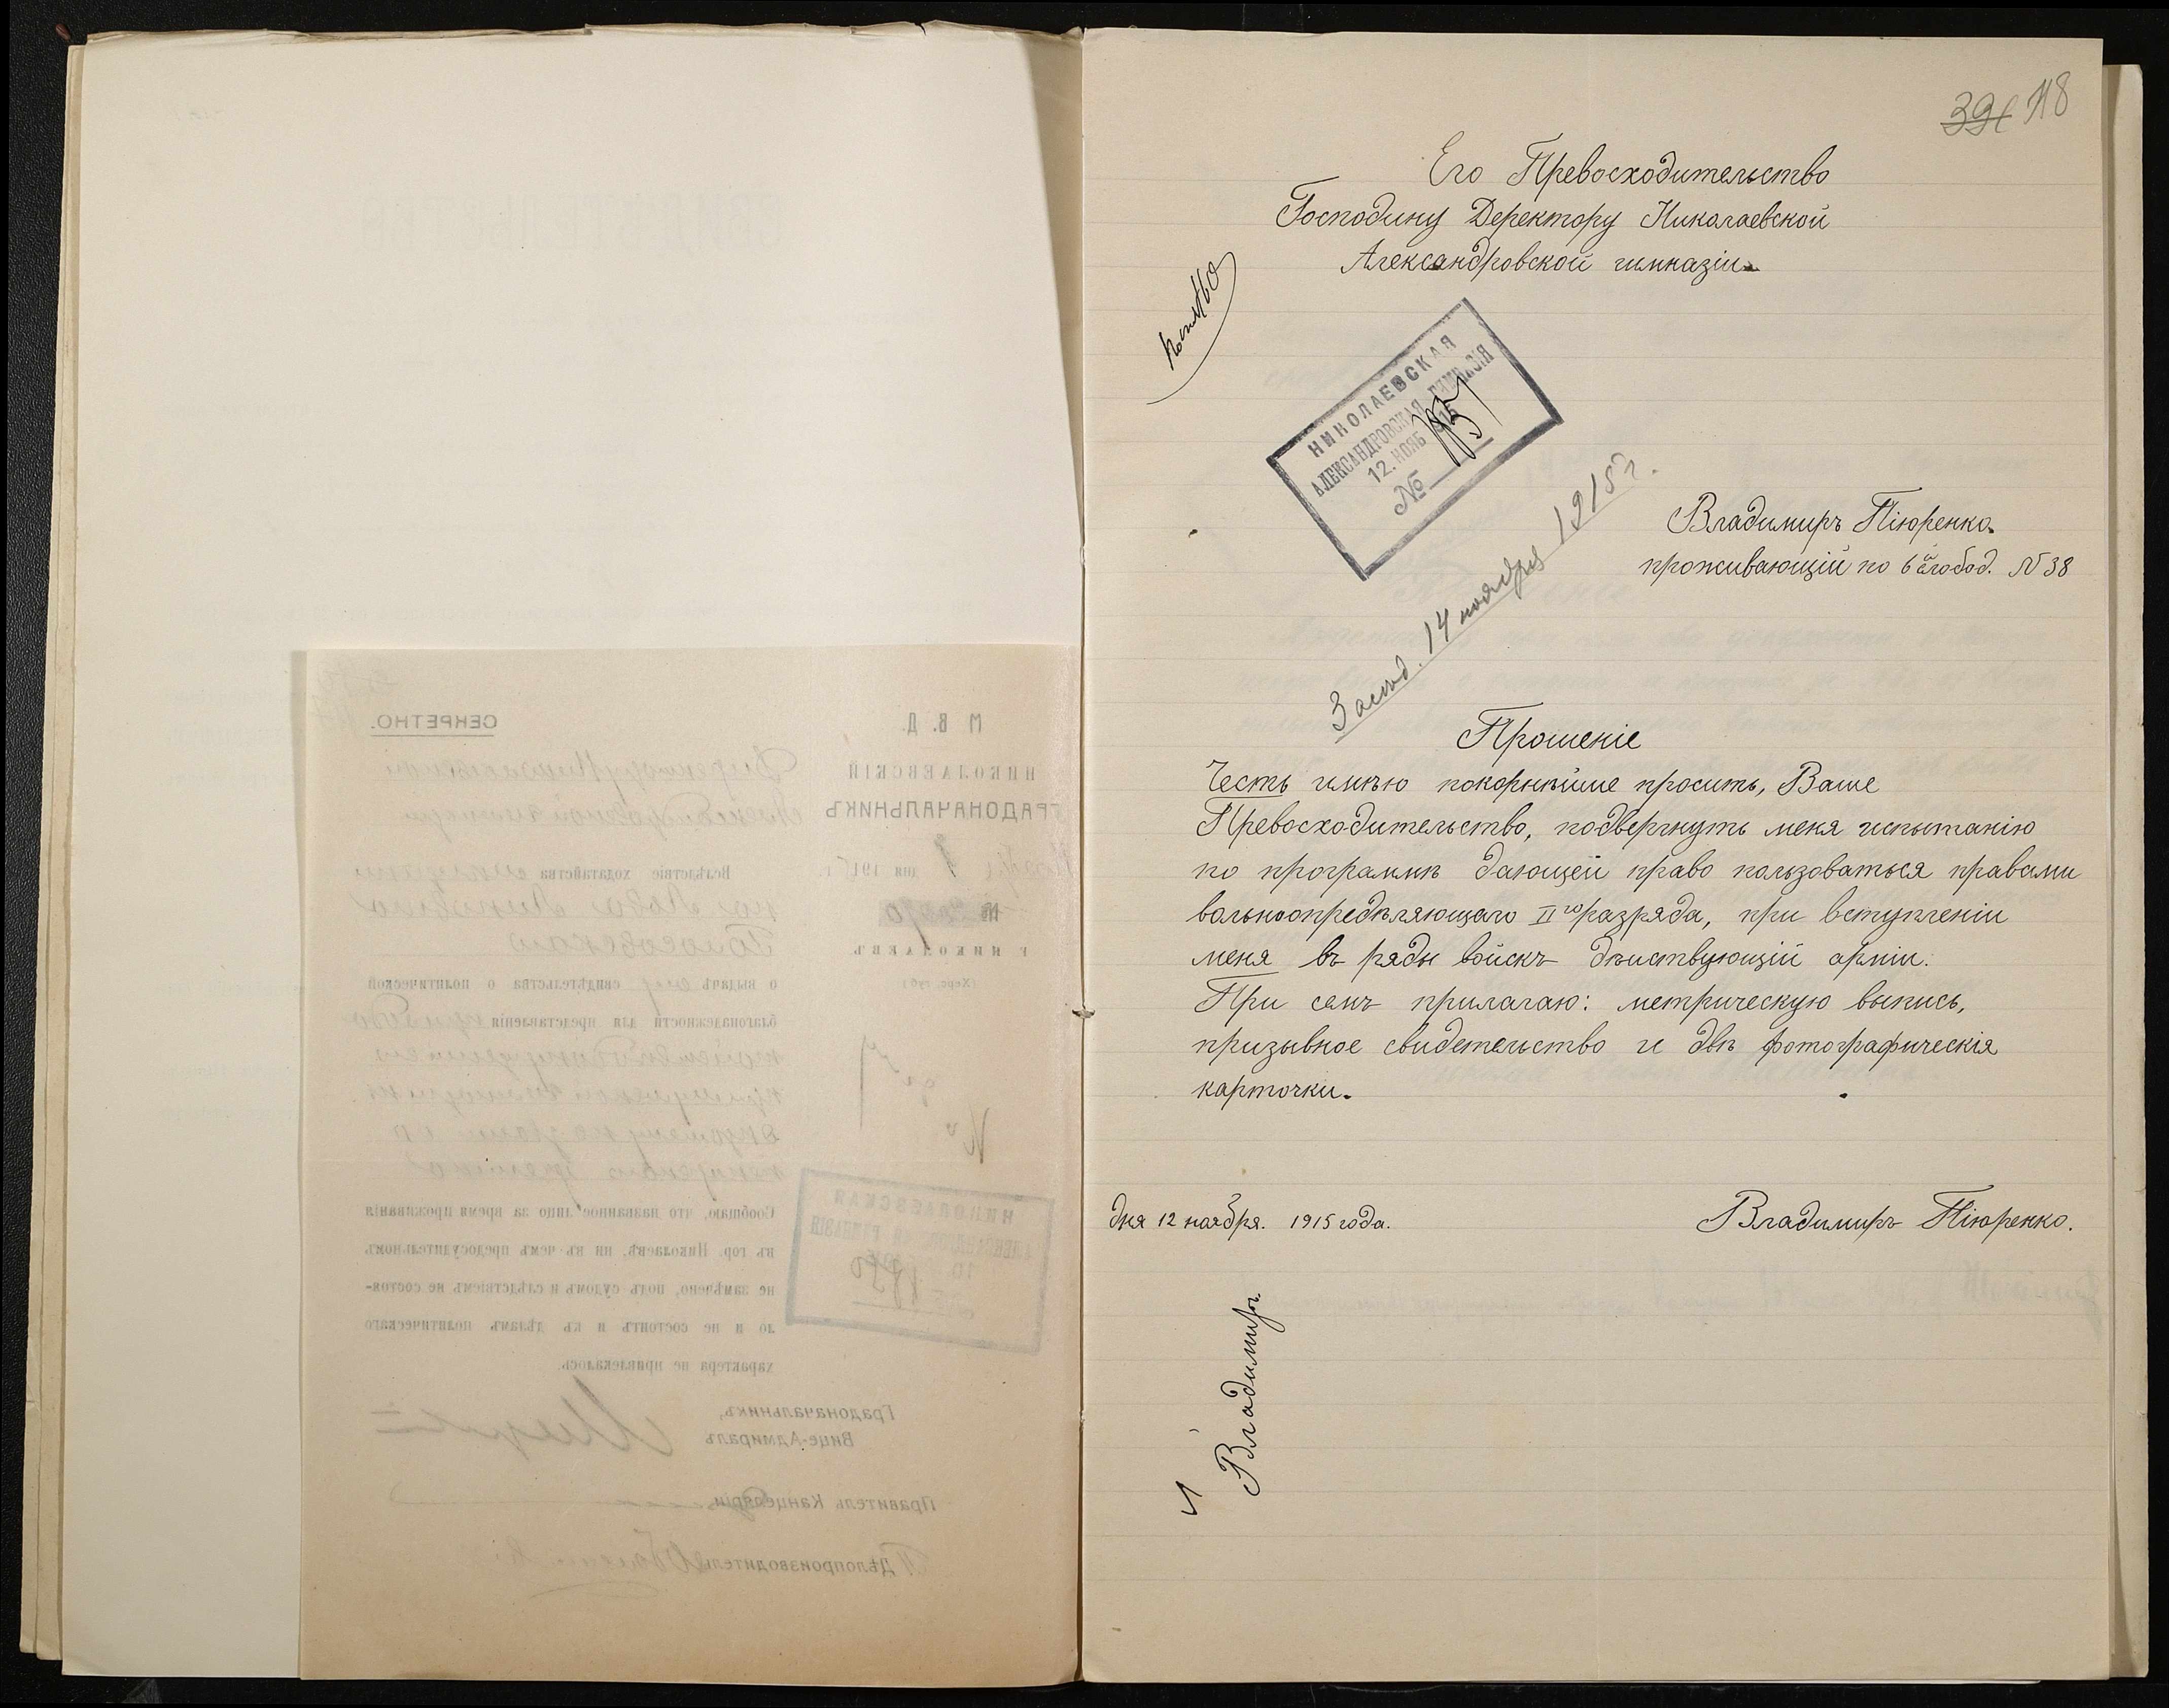 118
Его Превосходительство
Господину Деректору Николаевской
Александровской гимназіи.
НИКОЛАЕВСКАЯ
АЛЕКСАНДРОВСКАЯ ГИМНАЗІЯ
12. НОЯБ 1915
№
Засѣд. 14 ноября 1915 г.
Владимиръ Піюренко.
проживающій по 6 слобод. № 38
Прошеніе
Честь имѣю покорнѣйше просить, Ваше
Превосходительство, подвергнуть меня испытанію
по программѣ дающей право пользоваться правами
вольноопредѣляющаго II го разряда, при вступленіи
меня въ ряды войскъ дѣиствующій арміи.
При семъ прилагаю: метрическую выпись,
призывное свидетельство и двѣ фотографическія
карточки.
дня 12 ноября. 1915 года.
Владимиръ Піюренко.
Владимиръ
М. В. Д.
СЕКРЕТНО.
НИКОЛАЕВСКІЙ
ГРАДОНАЧАЛЬНИКЪ
дня 191
Вслѣдствіе ходатайства
№
Г. НИКОЛАЕВЪ
(Херс. губ.)
о выдачѣ ему свидѣтельства о политической
благонадежности для представленія
НИКОЛАЕВСКАЯ
Сообщаю, что названное лицо за время проживанія
въ гор. Николаевѣ, ни въ чемъ предосудительномъ
не замѣчено, подъ судомъ и слѣдствіемъ не состоя-
ло и не состоитъ и къ дѣламъ политическаго
характера не привлекалось.
Градоначальникъ,
Вице-Адмиралъ
Правитель Канцеляріи
Дѣлопроизводитель